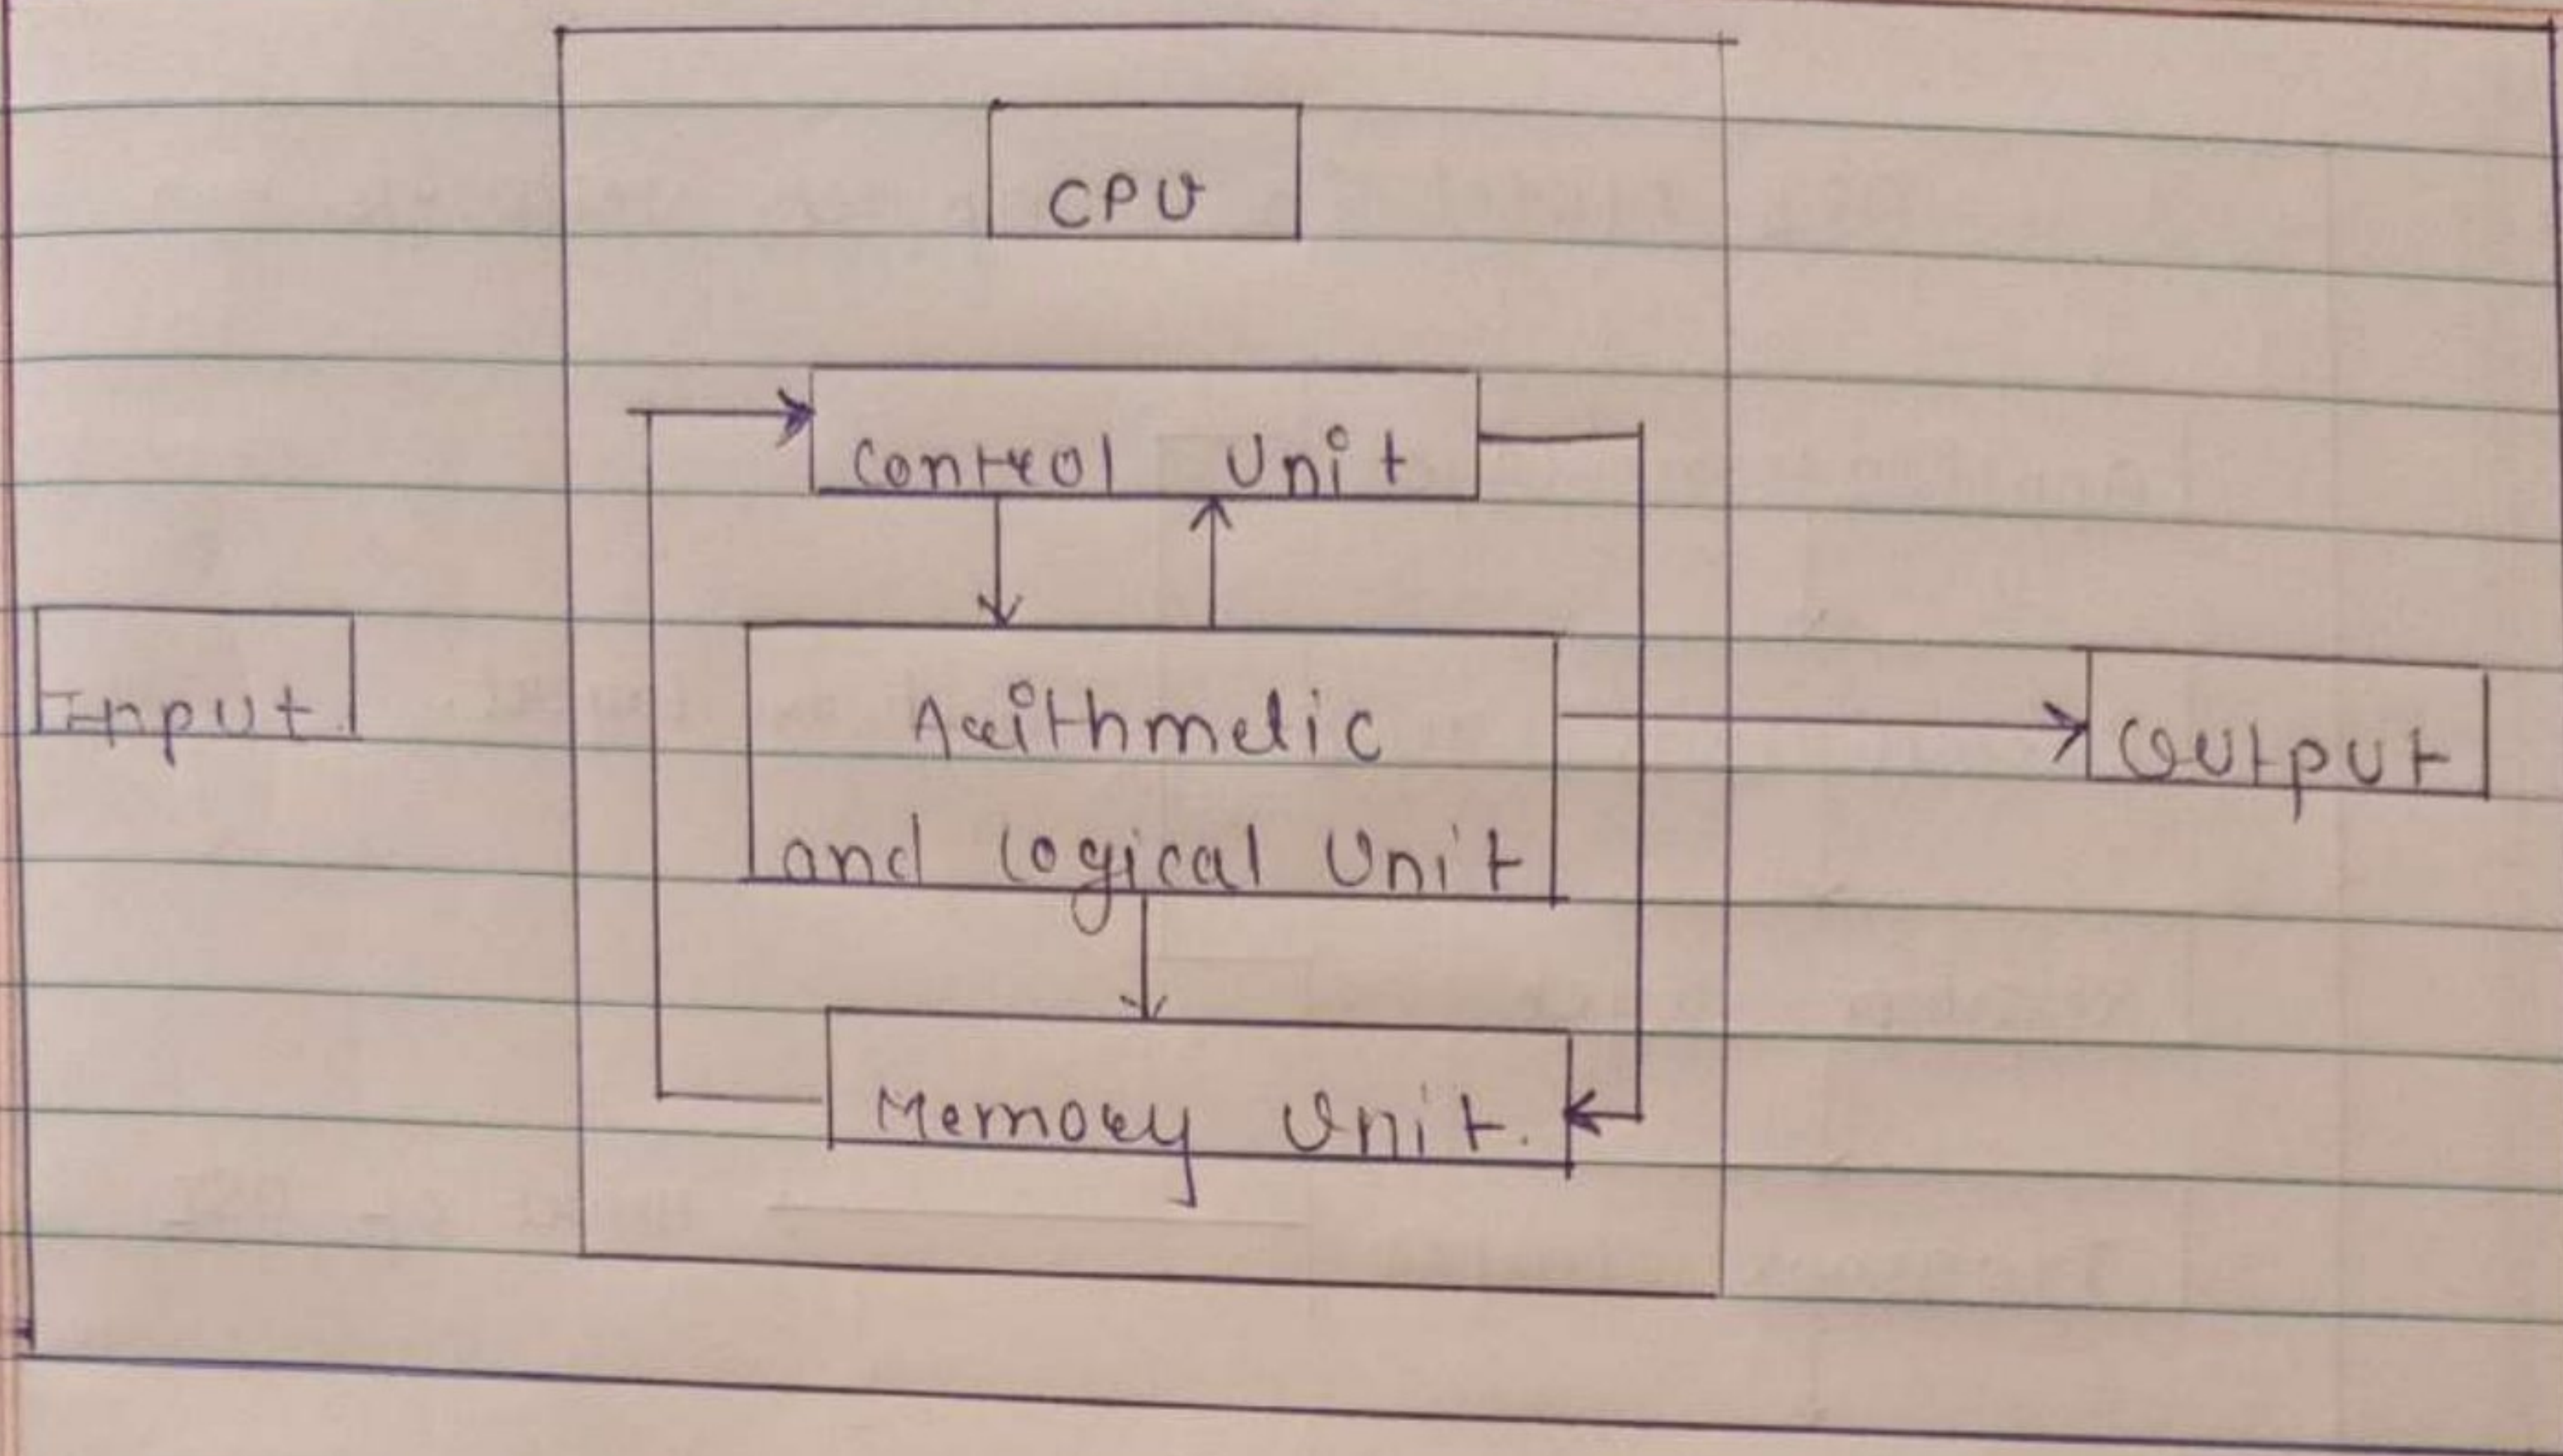 CPU
Control Unit
Input
Arithmetic
and logical Unit
Output
Memory Unit.